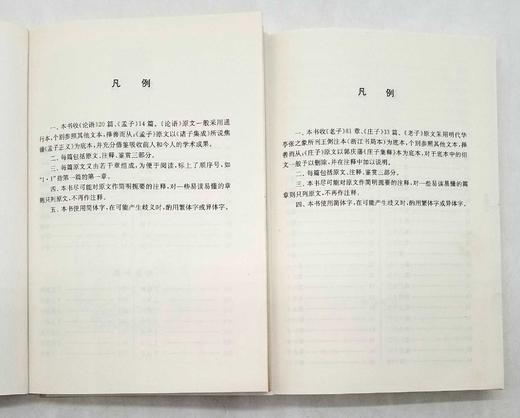 凡 例
一、本书收《论语》20篇、《孟子》14篇、《论语》原文一般采用通
行本,个别参照其他文本,择善而从;《孟子》原文以《诸子集成》所说焦
循《孟子正义》为底本,并充分借鉴吸收前人和今人的学术成果。
二、每篇包括原文、注释、鉴赏三部分。
三、每篇原文又由若干章组成,为便于阅读,标上了顺序号,如
“1·1”指第一篇的第一章。
四、本书尽可能对原文作简明扼要的注释,对一些易读易懂的章
则只列原文,不再作注释。
五、本书使用简体字,在可能产生歧义时,酌用繁体字或异体字。
凡 例
一、本书收《老子》81章、《庄子》33篇、《老子》原文采用明代华
亭张之象所刊王弼注本(浙江书局本)为底本,个别参照其他文本,
择善而从;《庄子》原文以郭庆藩《庄子集释》本为底本,对于底本中的组
文一般予以删除,并在注释中加以说明。
二、每篇包括原文、注释、鉴赏三部分。
三、本书尽可能对原文作简明扼要的注释,对一些易读易懂的篇
章则只列原文,不再作注释。
四、本书使用简体字,在可能产生歧义时,酌用繁体字或异体字。